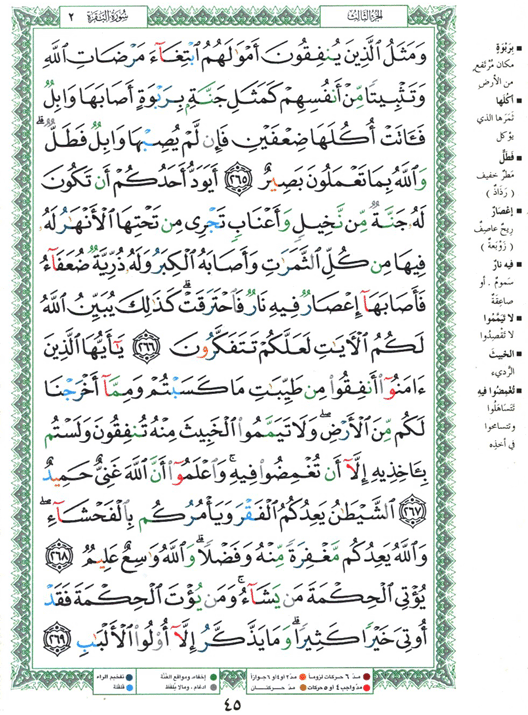 الجزء الثالث
سورة البقرة ٢
وَمَثَلُ الَّذِينَ يُنفِقُونَ أَمْوَٰلَهُمُ ابْتِغَآءَ مَرْضَاتِ اللَّهِ
وَتَثْبِيتًا مِّنْ أَنفُسِهِمْ كَمَثَلِ جَنَّةٍۭ بِرَبْوَةٍ أَصَابَهَا وَابِلٌ
فَـَٔاتَتْ أُكُلَهَا ضِعْفَيْنِ فَإِن لَّمْ يُصِبْهَا وَابِلٌ فَطَلٌّ ۗ
وَاللَّهُ بِمَا تَعْمَلُونَ بَصِيرٌ ٢٦٥ أَيَوَدُّ أَحَدُكُمْ أَن تَكُونَ
لَهُۥ جَنَّةٌ مِّن نَّخِيلٍ وَأَعْنَابٍ تَجْرِى مِن تَحْتِهَا الْأَنْهَٰرُ لَهُۥ
فِيهَا مِن كُلِّ الثَّمَرَٰتِ وَأَصَابَهُ الْكِبَرُ وَلَهُۥ ذُرِّيَّةٌ ضُعَفَآءُ
فَأَصَابَهَآ إِعْصَارٌ فِيهِ نَارٌ فَاحْتَرَقَتْ ۗ كَذَٰلِكَ يُبَيِّنُ اللَّهُ
لَكُمُ الْآيَٰتِ لَعَلَّكُمْ تَتَفَكَّرُونَ ٢٦٦ يَٰٓأَيُّهَا الَّذِينَ
ءَامَنُوٓا أَنفِقُوا مِن طَيِّبَٰتِ مَا كَسَبْتُمْ وَمِمَّآ أَخْرَجْنَا
لَكُم مِّنَ الْأَرْضِ ۖ وَلَا تَيَمَّمُوا الْخَبِيثَ مِنْهُ تُنفِقُونَ وَلَسْتُم
بِـَٔاخِذِيهِ إِلَّآ أَن تُغْمِضُوا فِيهِ ۚ وَاعْلَمُوٓا أَنَّ اللَّهَ غَنِىٌّ حَمِيدٌ
٢٦٧ الشَّيْطَٰنُ يَعِدُكُمُ الْفَقْرَ وَيَأْمُرُكُم بِالْفَحْشَآءِ ۖ
وَاللَّهُ يَعِدُكُم مَّغْفِرَةً مِّنْهُ وَفَضْلًا ۗ وَاللَّهُ وَٰسِعٌ عَلِيمٌ ٢٦٨
يُؤْتِى الْحِكْمَةَ مَن يَشَآءُ ۚ وَمَن يُؤْتَ الْحِكْمَةَ فَقَدْ
أُوتِىَ خَيْرًا كَثِيرًا ۗ وَمَا يَذَّكَّرُ إِلَّآ أُولُوا الْأَلْبَٰبِ ٢٦٩
■ بِرَبْوَةٍ
مكان مُرْتَفِعٍ
من الأرض
■ أُكُلَها
ثَمَرَها الذي
يُؤكل
■ فَطَلٌّ
مَطَرٌ خفيف
( رَذَاذٌ )
■ إعْصَارٌ
رِيحٌ عاصِفٌ
( زَوْبَعَةٌ )
■ فيه نارٌ
سَمُومٌ . أو
صاعِقَةٌ
■ لا تَيَمَّمُوا
لا تَقْصِدُوا
■ الخبيثَ
الرَّدِيء
■ تُغْمِضُوا فيهِ
تَتَسَاهَلُوا
وتتسامحوا
في أخذِه
مدّ ٦ حركات لزوماً
مدّ ٢ أو ٤ أو ٦ جوازاً
إخفاء، ومواقع الغنّة
تفخيم الراء
مدّ واجب ٤ أو ٥ حركات
مدّ حركتان
إدغام، وما لا يُلفظ
قلقلة
٤٥